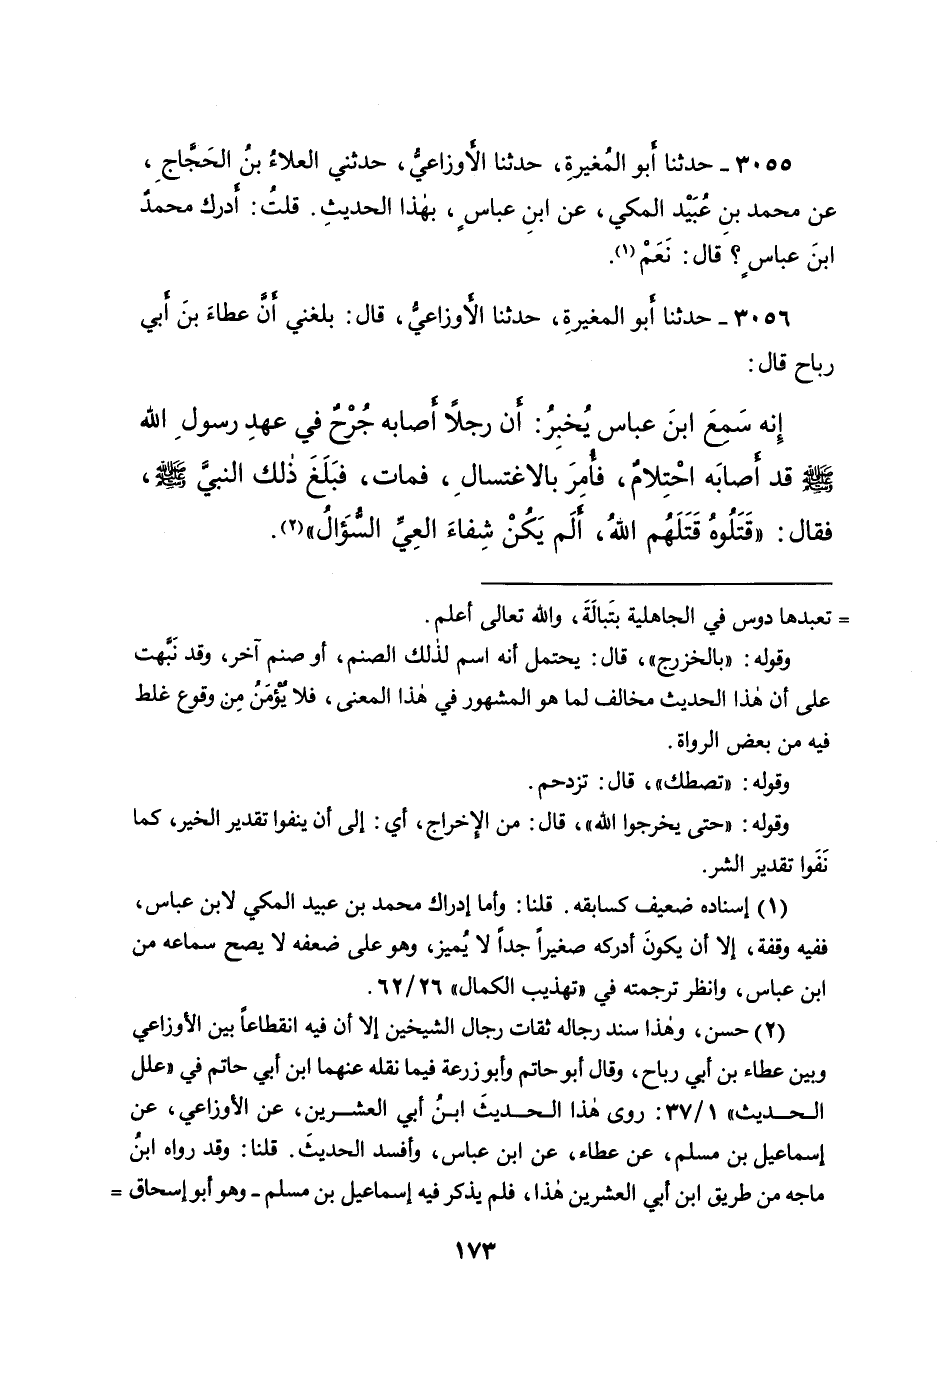 ٣٠٥٥ ـ حدثنا أَبو المُغيرةِ، حدثنا الأَوزاعيُّ، حدثني العلاءُ بنُ الحَجَّاجِ،
عن محمد بنِ عُبَيْد المكي، عن ابنِ عباسٍ، بهٰذا الحديثِ. قلتُ: أَدرك محمدٌ
ابنَ عباسٍ؟ قال: نَعَمْ(١).
٣٠٥٦ ـ حدثنا أَبو المغيرةِ، حدثنا الأَوزاعيُّ، قال: بلغني أَنَّ عطاءَ بنَ أَبي
رباح قال:
إِنه سَمِعَ ابنَ عباس يُخبِرُ: أَن رجلًا أَصابه جُرْحٌ في عهدِ رسولِ الله
ﷺ قد أَصابَه احْتِلامٌ، فأُمِرَ بالاغتسالِ، فمات، فبَلَغَ ذٰلك النبيَّ ﷺ،
فقال: «قَتَلُوهُ قَتَلَهُم اللهُ، أَلَم يَكُنْ شِفاءَ العِيِّ السُّؤَالُ»(٢).
= تعبدها دوس في الجاهلية بتَبالَةَ، والله تعالى أعلم.
وقوله: «بالخزرج»، قال: يحتمل أنه اسم لذٰلك الصنم، أو صنم آخر، وقد نَبَّهت
على أن هٰذا الحديث مخالف لما هو المشهور في هٰذا المعنى، فلا يُؤمَنُ مِن وقوع غلط
فيه من بعض الرواة.
وقوله: «تصطك»، قال: تزدحم.
وقوله: «حتى يخرجوا الله»، قال: من الإخراج، أي: إلى أن ينفوا تقدير الخير، كما
نَفَوا تقدير الشر.
(١) إسناده ضعيف كسابقه. قلنا: وأما إدراك محمد بن عبيد المكي لابن عباس،
ففيه وقفة، إلا أن يكونَ أدركه صغيراً جداً لا يُميز، وهو على ضعفه لا يصح سماعه من
ابن عباس، وانظر ترجمته في «تهذيب الكمال» ٦٢/٢٦.
(٢) حسن، وهٰذا سند رجاله ثقات رجال الشيخين إلا أن فيه انقطاعاً بين الأوزاعي
وبين عطاء بن أبي رباح، وقال أبو حاتم وأبو زرعة فيما نقله عنهما ابن أبي حاتم في «علل
الحديث» ٣٧/١: روى هٰذا الحديثَ ابنُ أبي العشرين، عن الأوزاعي، عن
إسماعيل بن مسلم، عن عطاء، عن ابن عباس، وأفسد الحديثَ. قلنا: وقد رواه ابنُ
ماجه من طريق ابن أبي العشرين هٰذا، فلم يذكر فيه إسماعيل بن مسلم ـ وهو أبو إسحاق =
١٧٣